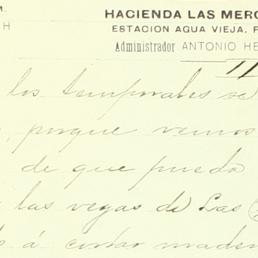 M. HACIENDA LAS MERC
H ESTACION AGUA VIEJA, F
Administrador ANTONIO HE
11
los temporales se
, porque vemos
de que puedo
las vegas de Las
á cortar mader